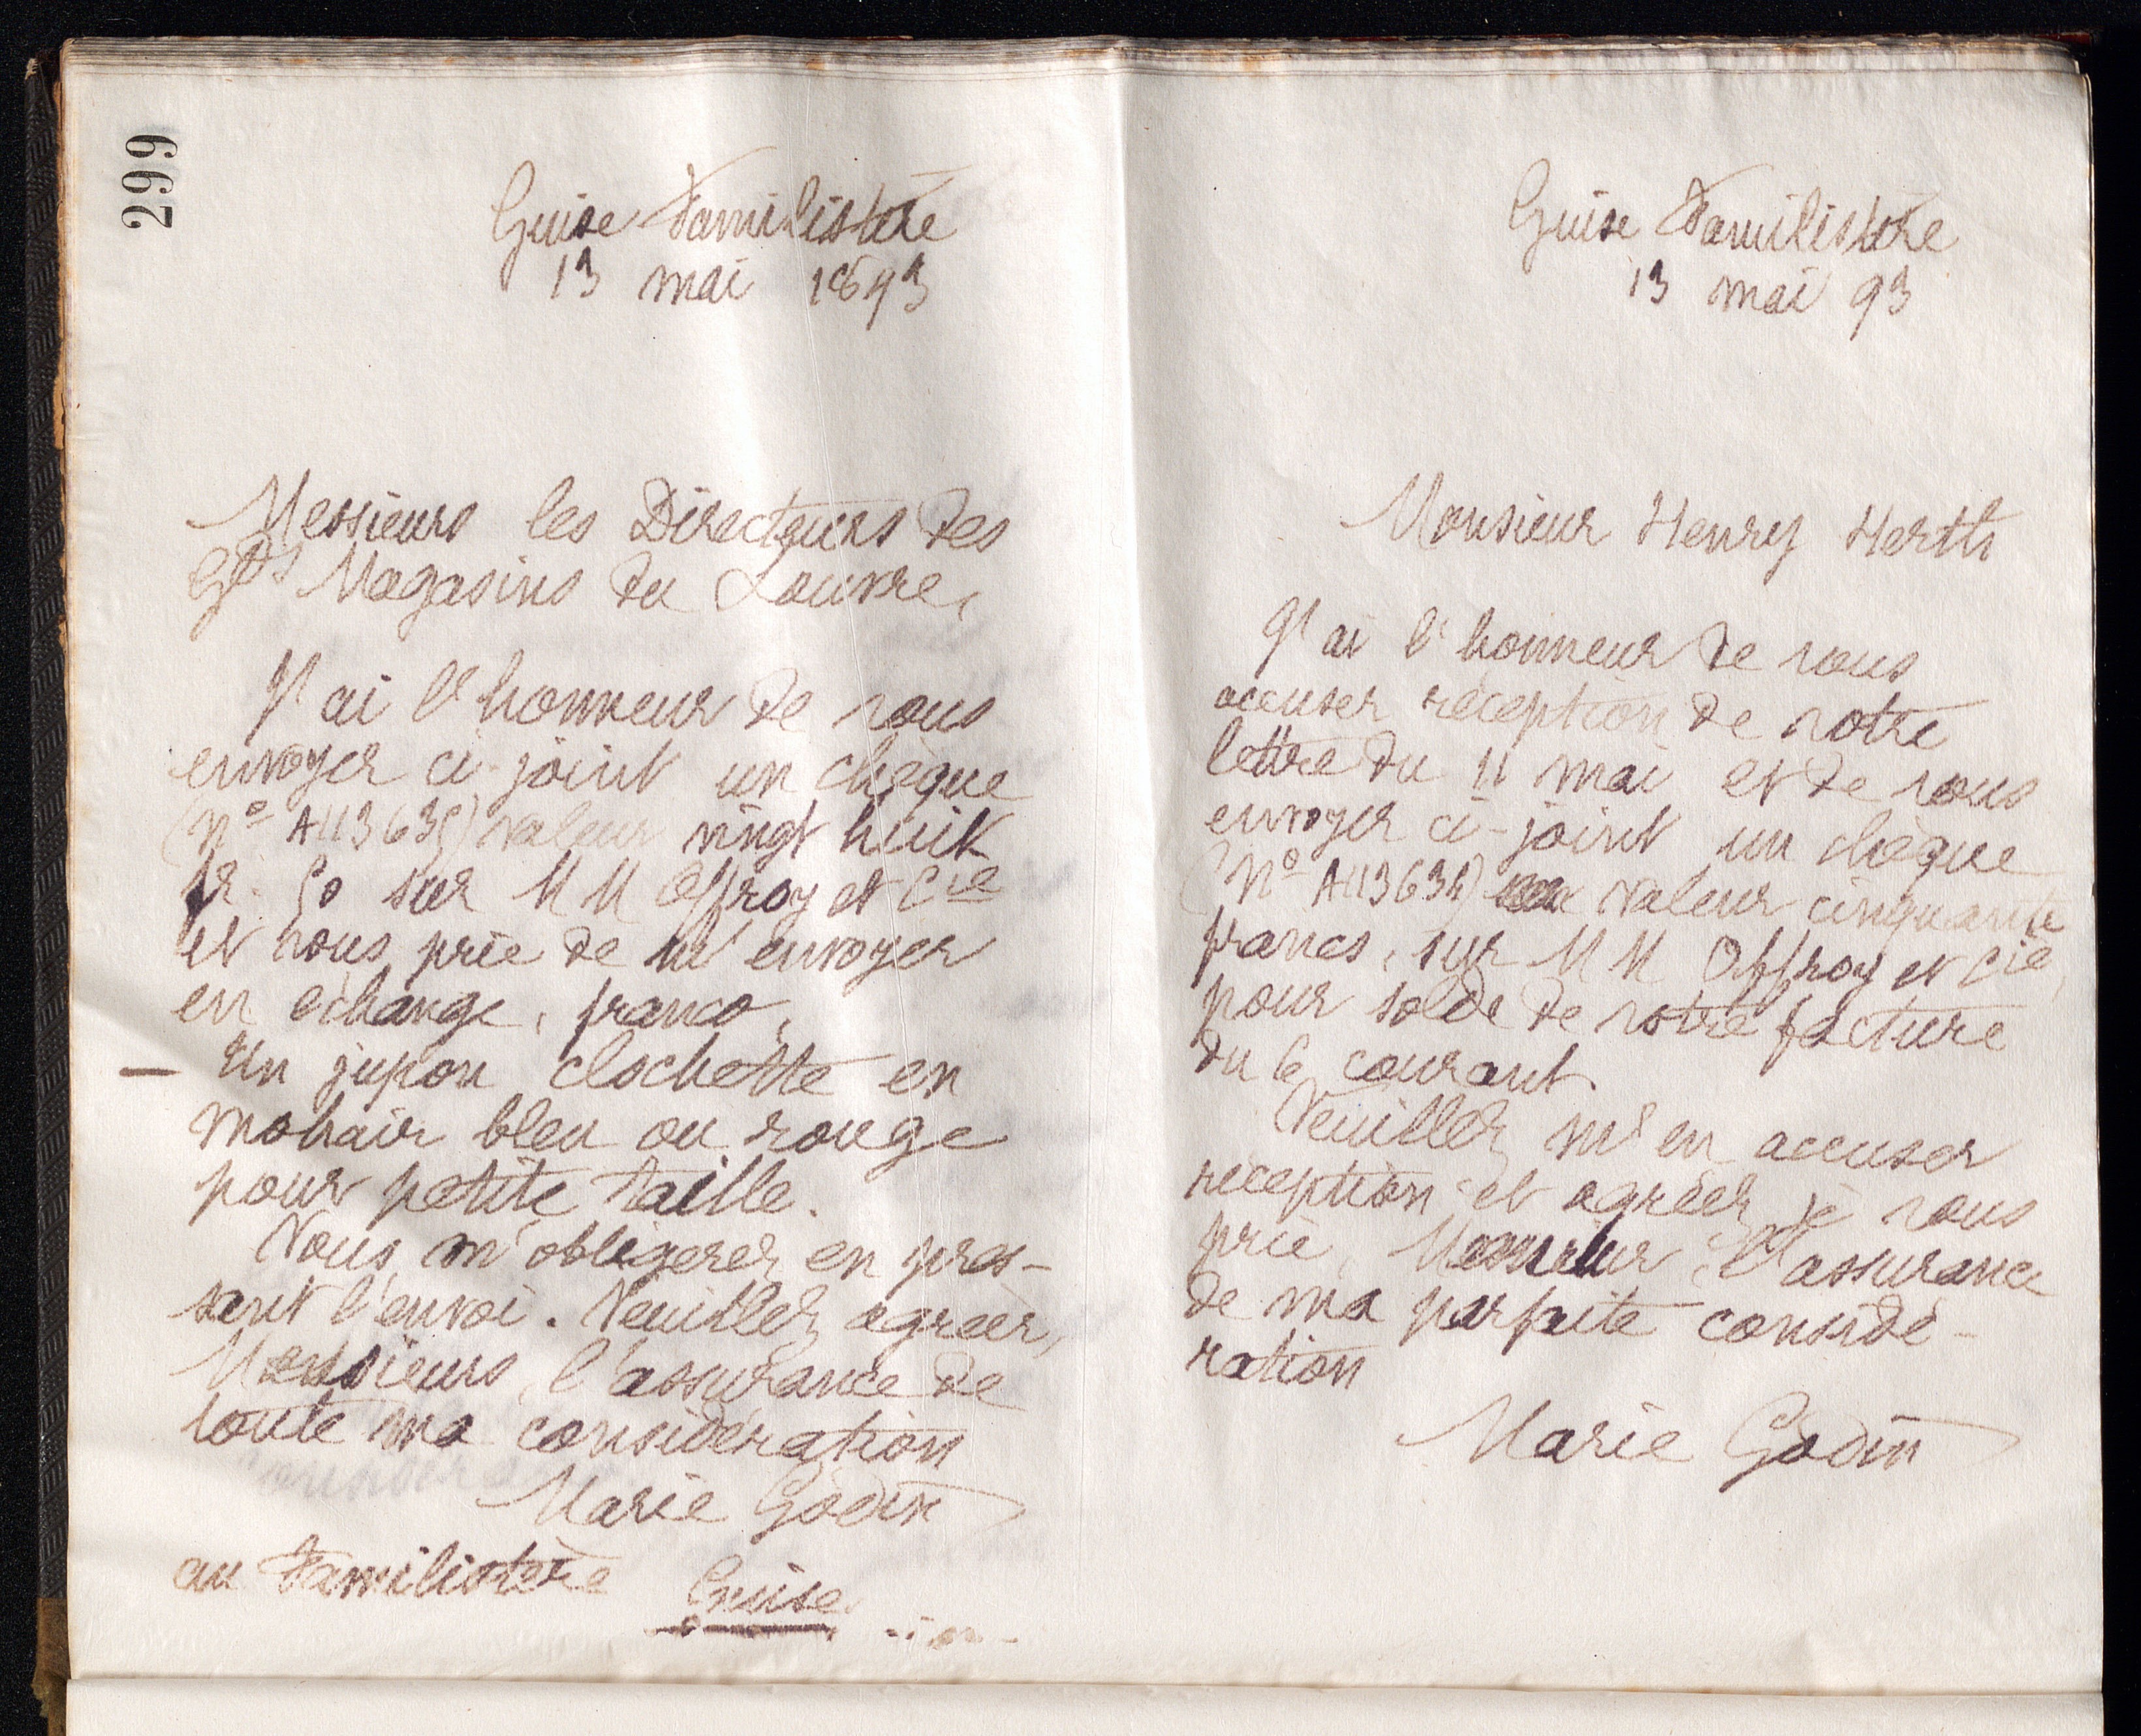 299
Guise Familistère
13 mai 1893
Messieurs les Directeurs des
Gds Magasins du Louvre,
J'ai l'honneur de vous
envoyer ci-joint un chèque
(No A113635) valeur vingt huit
fr. 50 sur MM Offroy et Cie
et vous prie de m'envoyer
en échange, franco,
— Un jupon clochette en
mohair bleu ou rouge
pour petite taille.
Vous m'obligerez en pres-
sant l'envoi. Veuillez agréer,
Messieurs, l'assurance de
toute ma considération
Marie Godin
au Familistère Guise
Guise Familistère
13 mai 93
Monsieur Henry Herth
J'ai l'honneur de vous
accuser réception de votre
lettre du 11 mai et de vous
envoyer ci-joint un chèque
(No A113634) valeur cinquante
francs, sur MM Offroy et Cie,
pour solde de votre facture
du 6 courant.
Veuillez m'en accuser
réception et agréer, je vous
prie, Monsieur, l'assurance
de ma parfaite considé-
ration
Marie Godin